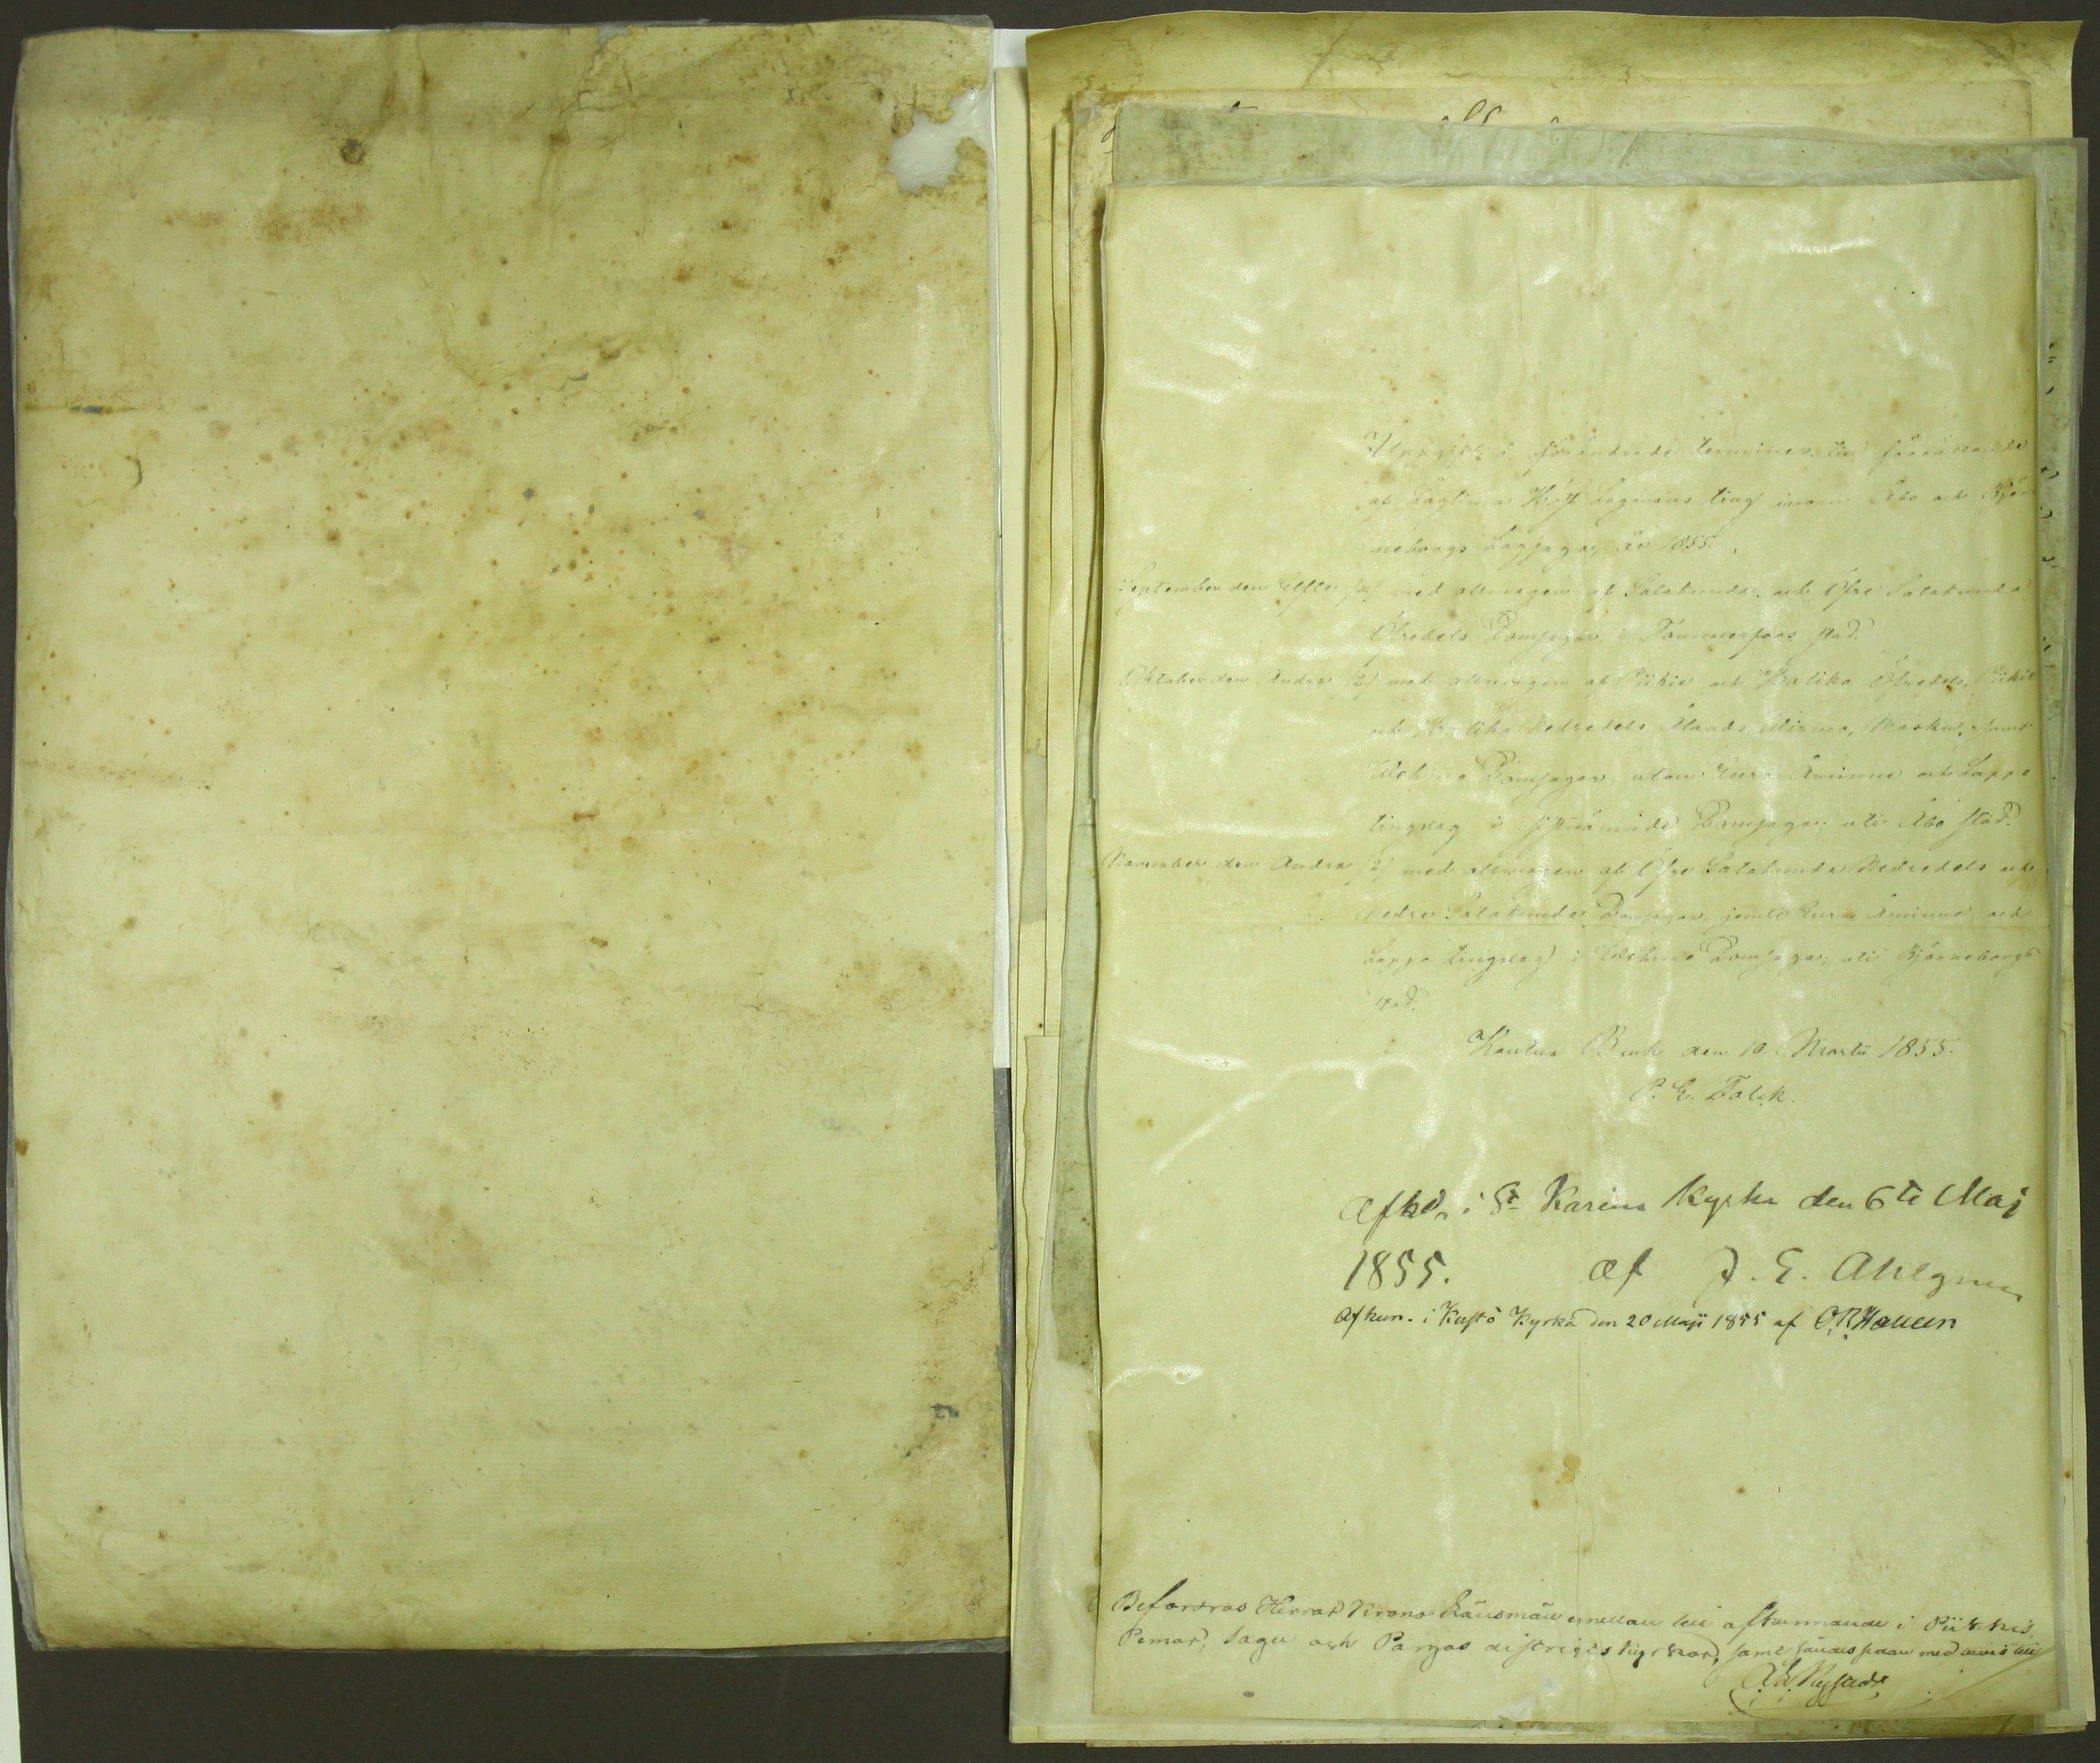 Uppgift å förändrade terminer till förrättande
af Lagtima Höst Lagmans ting inom Åbo och Björ
neborgs Lagsaga, år 1855.
September den Elfte (11) med allmogen af Satakunda, och Öfre Satakunda
Öfredels Domsagor i Tammerfors stad.
Oktober den Andra (2) med allmogen af Piikie och Haliko Öfredels, Piikie
och Haliko Nedredels Ålands, Masku, samt
Domsagor, utom Eura Åminne och Lappo
tingslag i sistnämnde Domsaga; uti Åbo stad.
November den Andra (2) med allmogen af Öfre Satakunda Nedredels och
Nedre Satakunda Domsagor jemte Eura Åminne och
Lappo tingslag i Domsaga; uti Björneborgs
stad.
Kautua Bruk den 10 Martii 1855.
P. E. Falck.
Afkd. i St Karins Kyrka den 6te Maj
1855. af J. E. Ahlgren
Afkun. i Kustö Kyrka den 20 Maji 1855 af
Befordras Herrar Krono Länsmän emellan till afkunnande i Piikkis,
Pemar, Sagu och Pargas districts kyrkor, samt sändes sedan med bevis till